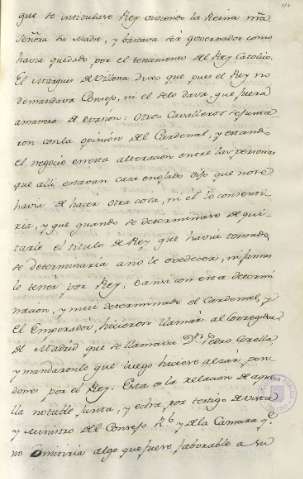 que se intitulase Rey viviendo la Reina nra
Señora su Madre, y bastava ser governador como
havia quedado por el testamento del Rey Catolico.
El Marques de Villena dixo que pues el Rey no
demandava Consejo, ni el se lo dava, que fuera
Otros Cavalleros se junta
ron con la opinión del Cardenal, y estando
el negocio en esta alteracion entre las personas
que alli estavan casi enojado dijo que no se
havia de hacer otra cosa, ni el lo consentir
ia, y que quando se determinase de qui
tarle el titulo de Rey que havia tomado,
se determinaria a no le obedecer, ni jamas
lo tener por Rey, e ansi con esta determi
nacion, y mui determinado el Cardenal, y
el Emperador, hicieron llamar al corregidor
de Madrid que se llamava Dn. Pedro
y mandaronle que luego hiciese alzar pen
dones por el Rey. Esta es la relacion de aque
lla notable junta, y echa por testigo de vista
y Ministro del Consejo Rl. y de la Camara q.e
no omitiria algo que fuese faborable a su